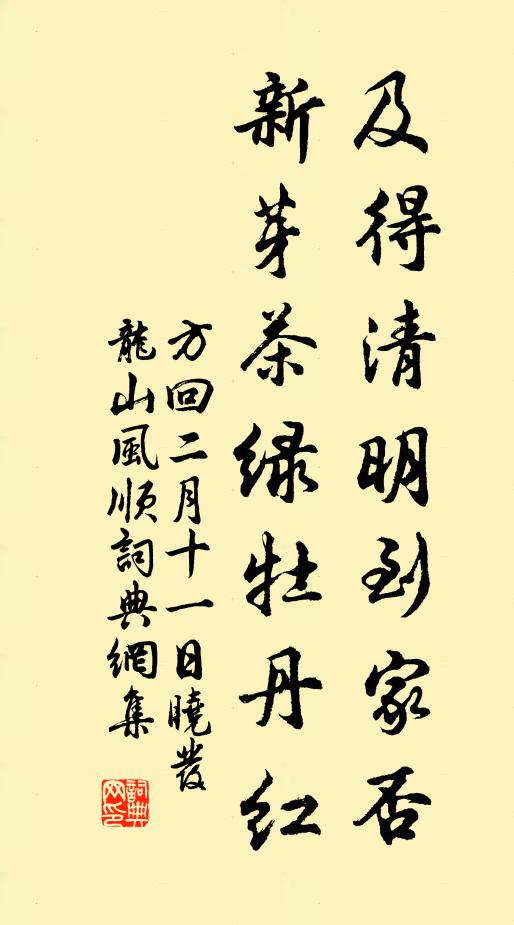 及得清明到家否
新芽茶绿牡丹红
方回二月十一日曉發
龍山風順詞典網集
詞典網印